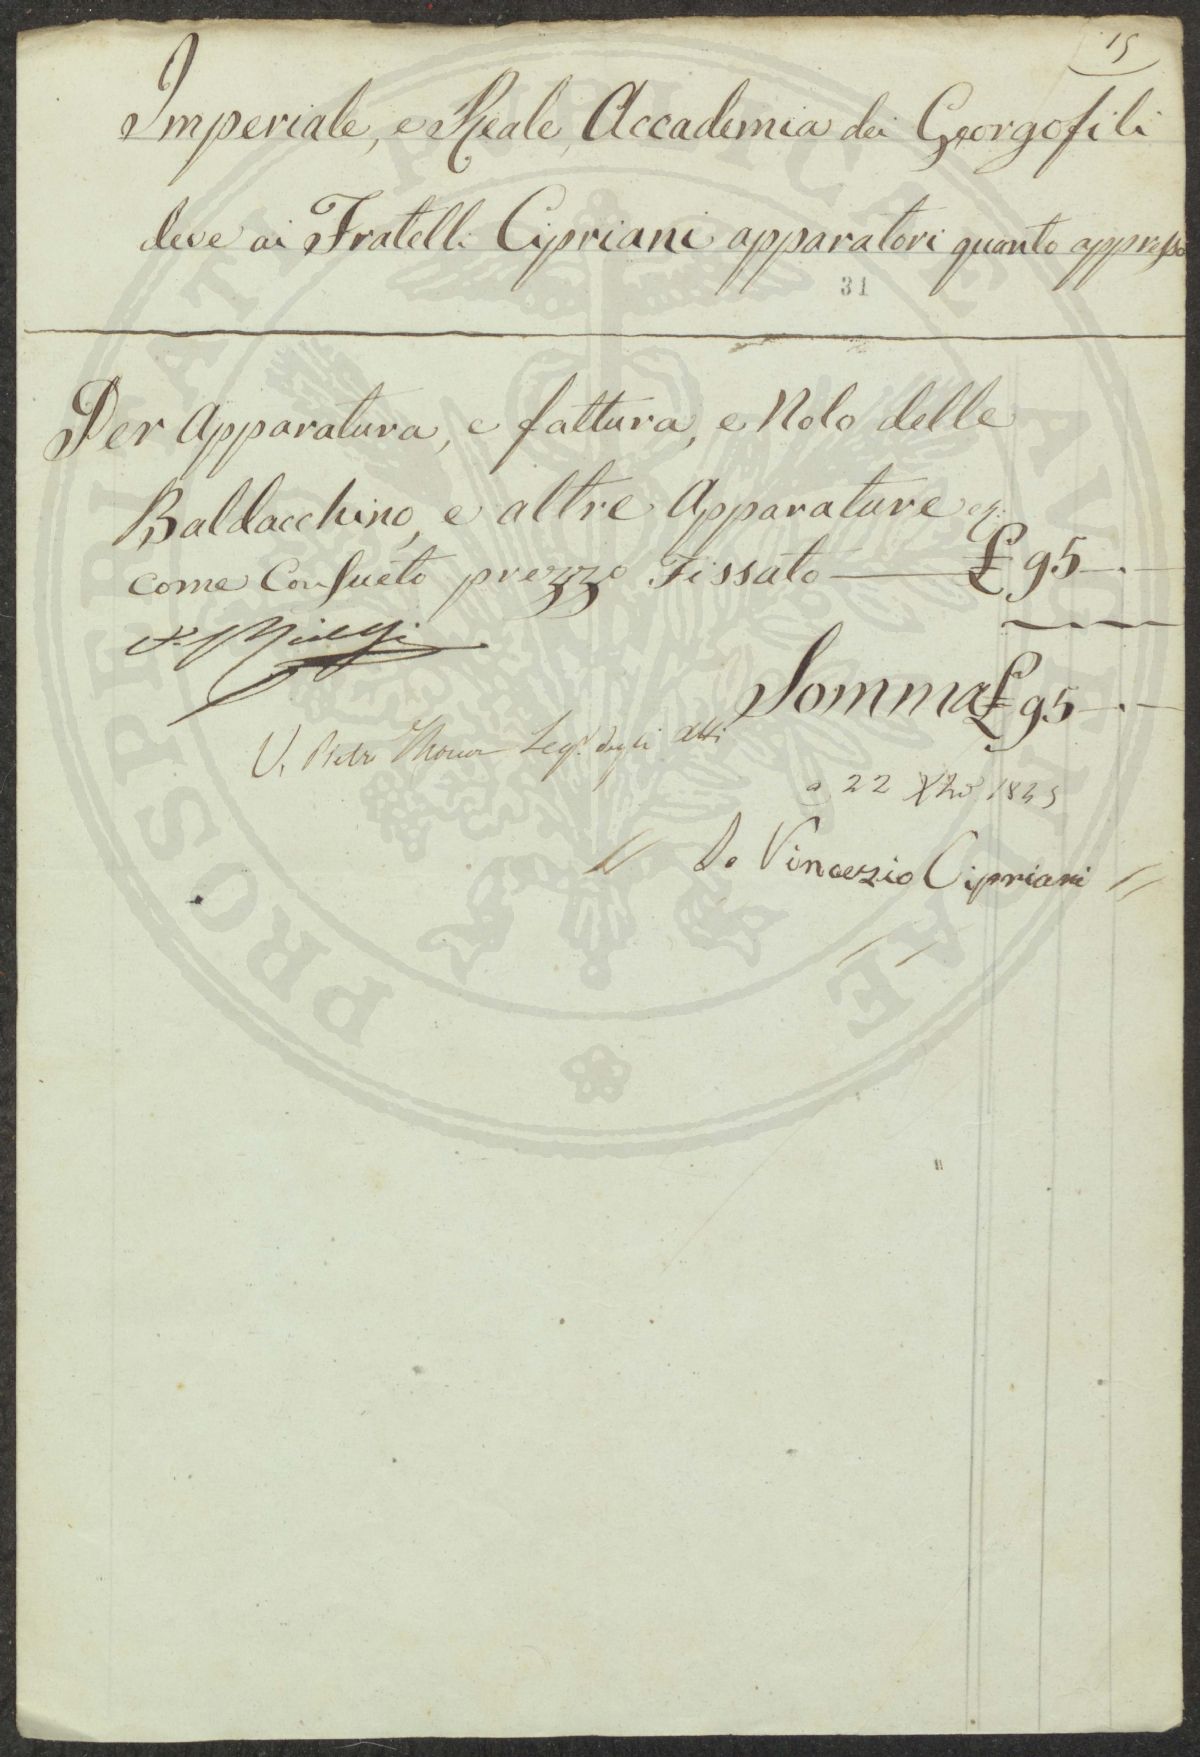 15
Imperiale, e Reale Accademia dei Georgofili
deve ai Fratelli Cipriani apparatori quanto appresso
31
Per Apparatura, e fattura, e Nolo delle
Baldacchino, e altre Apparature
come Consueto prezzo Fissato — £ 95 - . -
Somma £ 95 - . -
V. Pietro Thouar Seg. degli Atti
a 22 Xbre 18
Io Vincezio Cipriani
PROSPERITATI PUBLICAE AUGENDAE